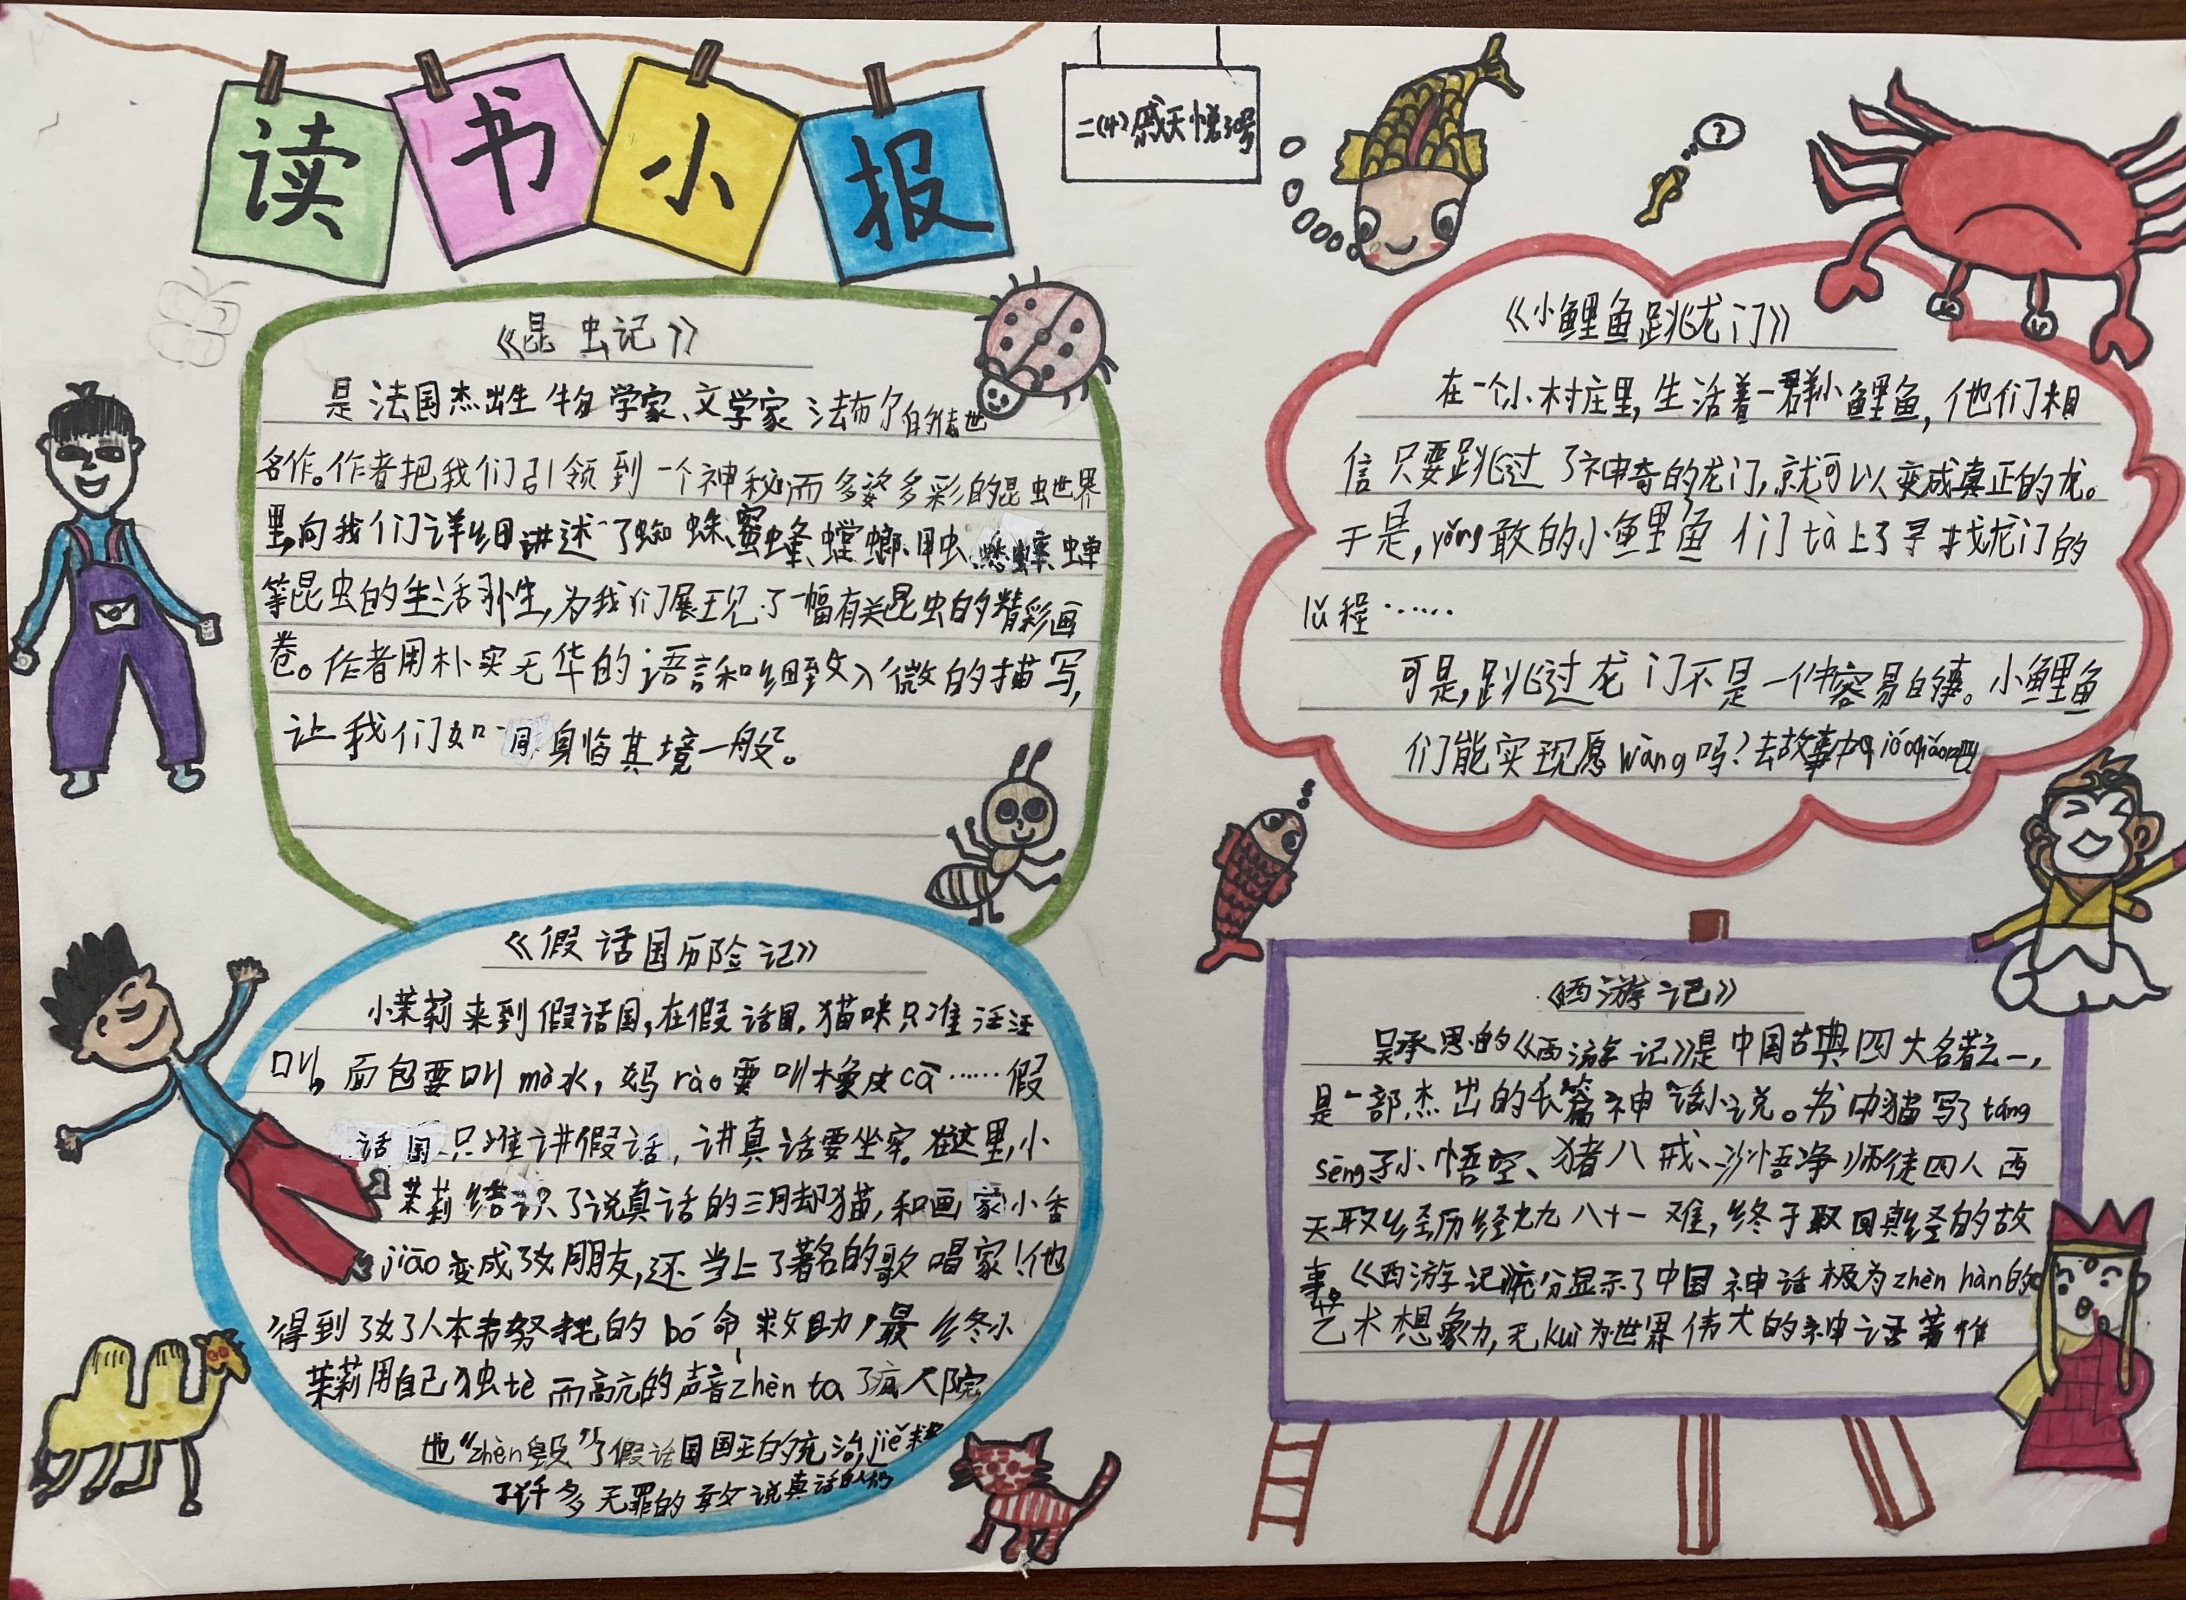 读书小报
二(4) 戚天悦30号
《昆虫记》
是法国杰出生物学家、文学家法布尔的传世
名作。作者把我们引领到一个神秘而多姿多彩的昆虫世界
里,向我们详细讲述了蜘蛛、蜜蜂、螳螂、甲虫、蟋蟀、蝉
等昆虫的生活习性,为我们展现了一幅有关昆虫的精彩画
卷。作者用朴实无华的语言和细致入微的描写,
让我们如同身临其境一般。
《假话国历险记》
小茉莉来到假话国,在假话国,猫咪只准汪汪
叫,面包要叫mò水,妈rào要叫橡皮cā……假
话国只准讲假话,讲真话要坐牢。在这里,小
茉莉结识了说真话的三月却猫,和画家小香
jiāo变成了好朋友,还当上了著名的歌唱家!他
得到了好人本韦努托的bó命救助,最终小
茉莉用自己独tè而高亢的声音zhèn ta了疯人院
也“zhèn毁”了假话国国王的统治,jiě救
了许多无罪的敢说真话的人们
《小鲤鱼跳龙门》
在一个小村庄里,生活着一群小鲤鱼,他们相
信只要跳过了神奇的龙门,就可以变成真正的龙。
于是,yǒng敢的小鲤鱼们tà上了寻找龙门的
lǚ程……
可是,跳过龙门不是一件容易的事。小鲤鱼
们能实现愿wàng吗?去故事中qiáoqiáo吧
《西游记》
吴承恩的《西游记》是中国古典四大名著之一,
是一部杰出的长篇神话小说。书中猫写了táng
sēng孙悟空、猪八戒、沙悟净师徒四人西
天取经历经九九八十一难,终于取回真经的故
事。《西游记》充分显示了中国神话极为zhèn hàn的
艺术想象力,无kuì为世界伟大的神话著作